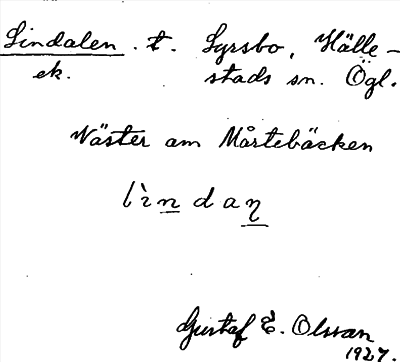 Lindalen . t. Syrsbo, Hälle-
ek. stads sn. Ögl.
Väster am Mårtebäcken
lìndaṉ
Gustaf E. Olsson
1927.